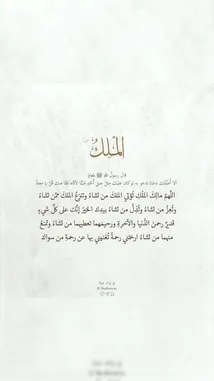 الملك
قال رسول الله ﷺ لمعاذ
ألا أعلمك دعاء تدعو به لو كان عليك مثل جبل أحد دينا لأداه الله عنك قل يا معاذ
اللَّهُمَّ مالِكَ المُلْكِ تُؤتي المُلكَ مَن تشاءُ وتنزِعُ الملكَ مَمَّن تشاءُ
وتُعِزُّ من تشاءُ وتُذِلُّ من تشاءُ بيدِكَ الخيرُ إنَّك على كلِّ شيءٍ
قديرٌ رحمنَ الدُّنيا والآخرةِ ورحيمَهما تعطيهما من تشاءُ وتمنعُ
منهما من تشاءُ ارحَمْني رحمةً تُغنيني بها عن رحمةِ من سواك